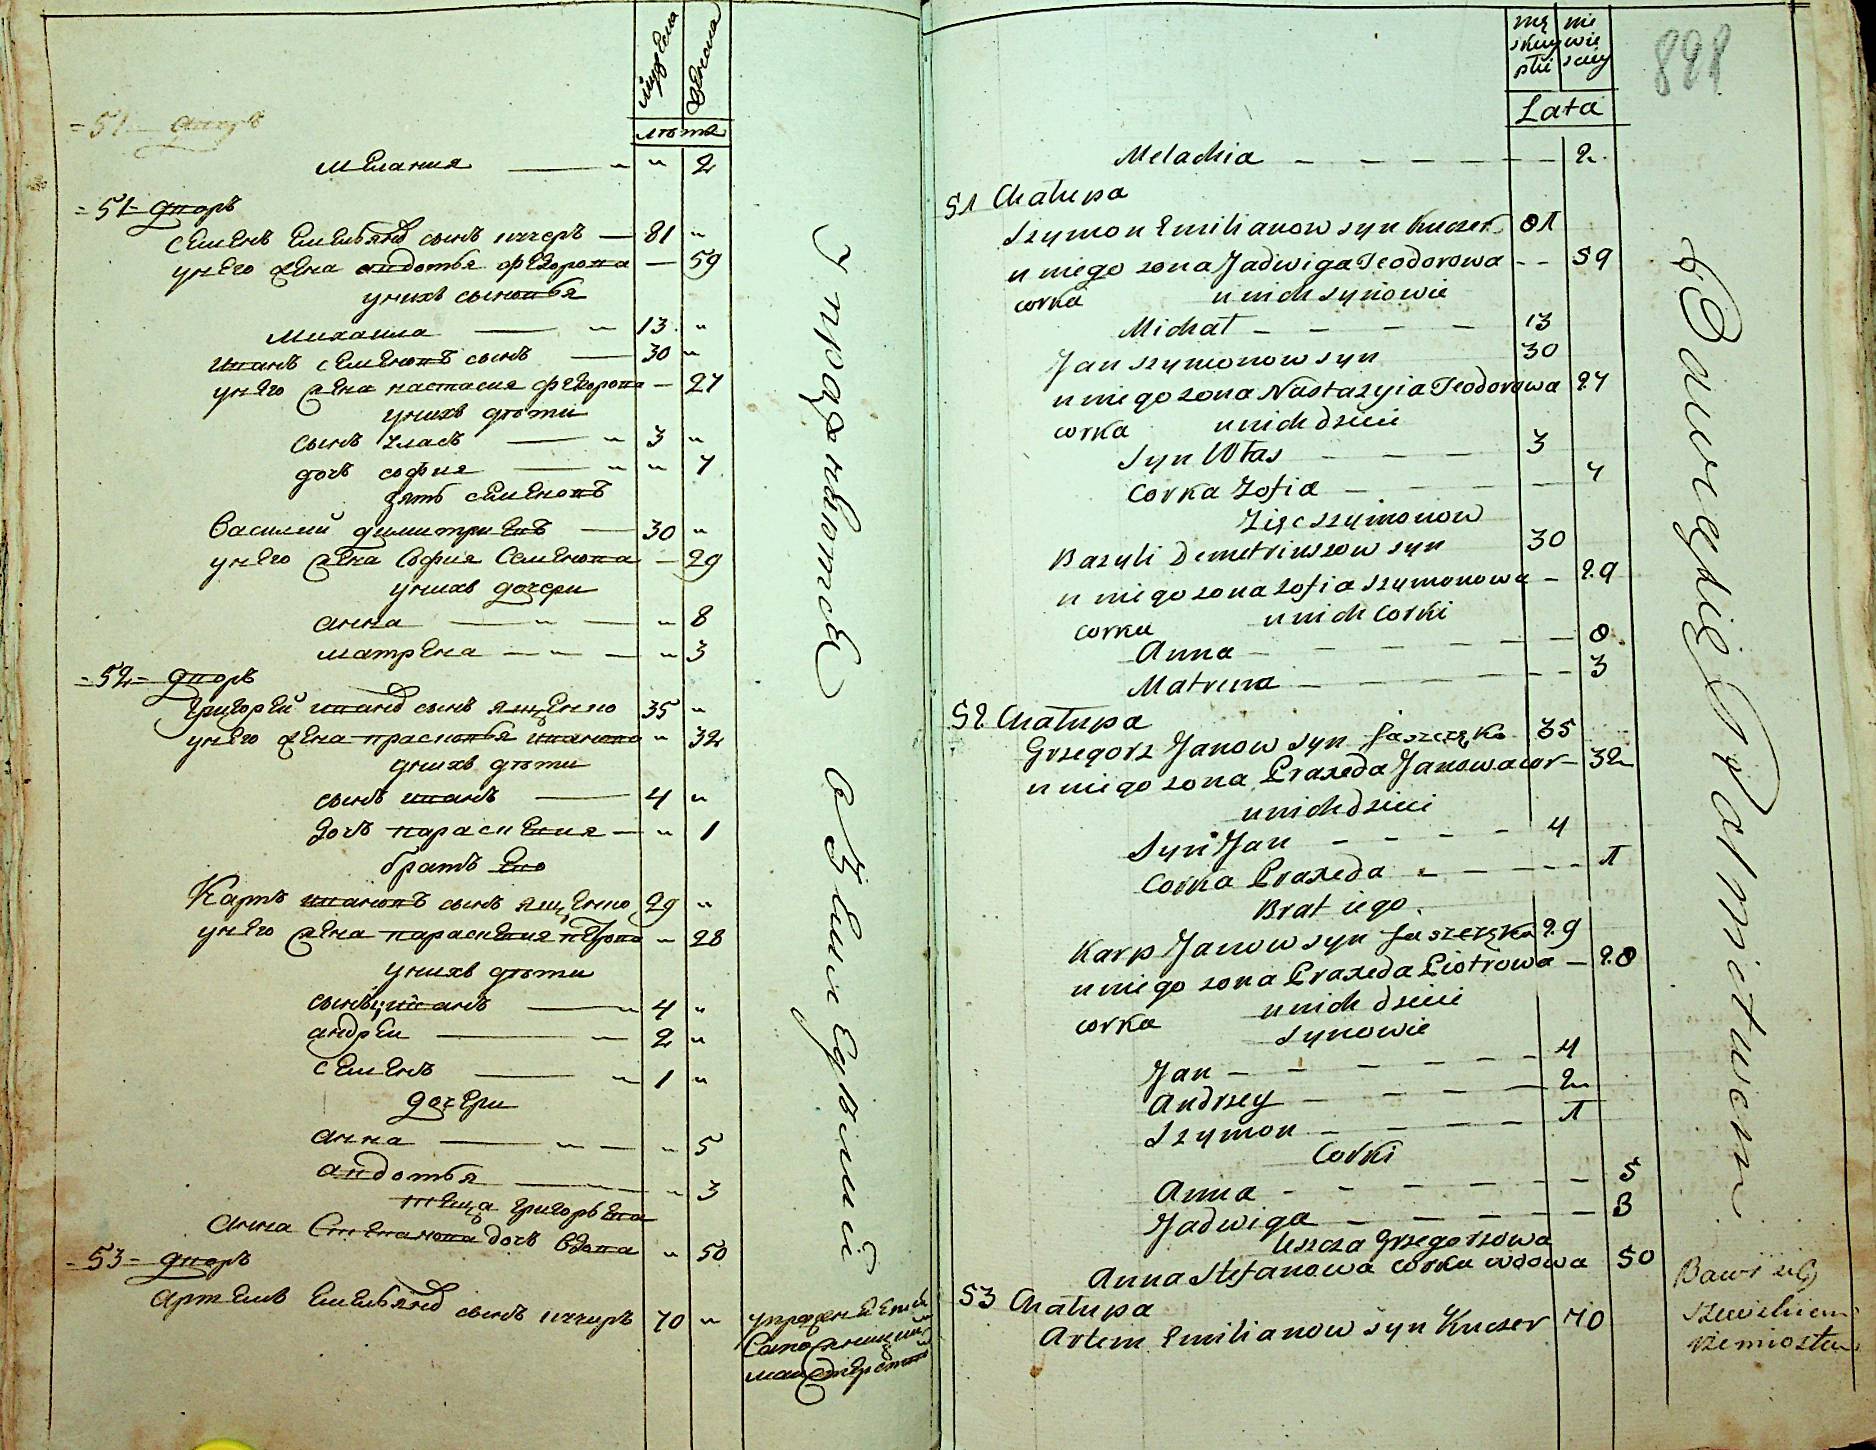 мужеска
женска
лѣта
=51= дворъ
мелания — " " 2
=51= дворъ
семенъ емельяновъ сынъ кучеръ — 81 "
у него жена авдотья федорова — 59
у нихъ сыновья
михаила — " 13 "
иванъ семеновъ сынъ — 30 "
у него жена настасия федорова — 27
у нихъ дѣти
сынъ власъ — " 3 "
дочь софия — " " 7
зять семеновъ
василий димитриевъ — 30 "
у него жена софия семенова — 29
у нихъ дочери
анна — " — " 8
матрена — — — " 3
=52= дворъ
григорей ивановъ сынъ ященко 35 "
у него жена прасковья иванова " 32
у нихъ дѣти
сынъ иванъ — 4 "
дочь параскевия — " 1
братъ его
Карпъ ивановъ сынъ ященко 29 "
у него жена параскевия петрова " 28
у нихъ дѣти
сынъ иванъ — 4 "
андреи — 2 "
семенъ — " 1 "
дочери
анна — " — " 5
авдотья — " 3
теща григорьева
анна степанова дочь вдова " 50
=53= дворъ
артемъ емельяновъ сынъ кучеръ 70 "
упражняются в земледѣлии
męskiey płci
niewiesciey
Lata
898
Melachia — — — — — 2
51 Chałupa
Szymon Emilianow syn Kuczer 81
u niego zona Jadwiga Teodorowa - - 59
corka u nich synowie
Michał — — — — 13
Jan Szymonow syn 30
u niego zona Nastazyia Teodorowa 27
corka u nich dzieci
Syn Włas — — — 3
Corka Zofia — — — — 7
Zięc Szymonow
Bazyli Demetriuszow syn 30
u niego zona Zofia Szymonowa — 29
corka u nich corki
Anna — — — — — 8
Matrena — — — — — 3
52 Chałupa
Grzegorz Janow syn Jaszczęko 35
u niego zona Praxeda Janowa cor— 32
u nich dzieci
Syn Jan — — — — 4
Corka Praxeda — — — — 1
Brat iego
Karp Janow syn Jaszczęko 29
u niego zona Praxeda Piotrowa — 28
corka u nich dzieci
Synowie
Jan — — — — — 4
Andrzey — — — — 2
Szymon — — — — 1
Corki
Anna — — — — — 5
Jadwiga — — — — — 3
Teszcza Grzegorzowa
Anna Stefanowa corka wdowa 50
53 Chałupa
Artem Emilianow syn Kuczer 70
Bawi się
szewskiem
rzemiosłem